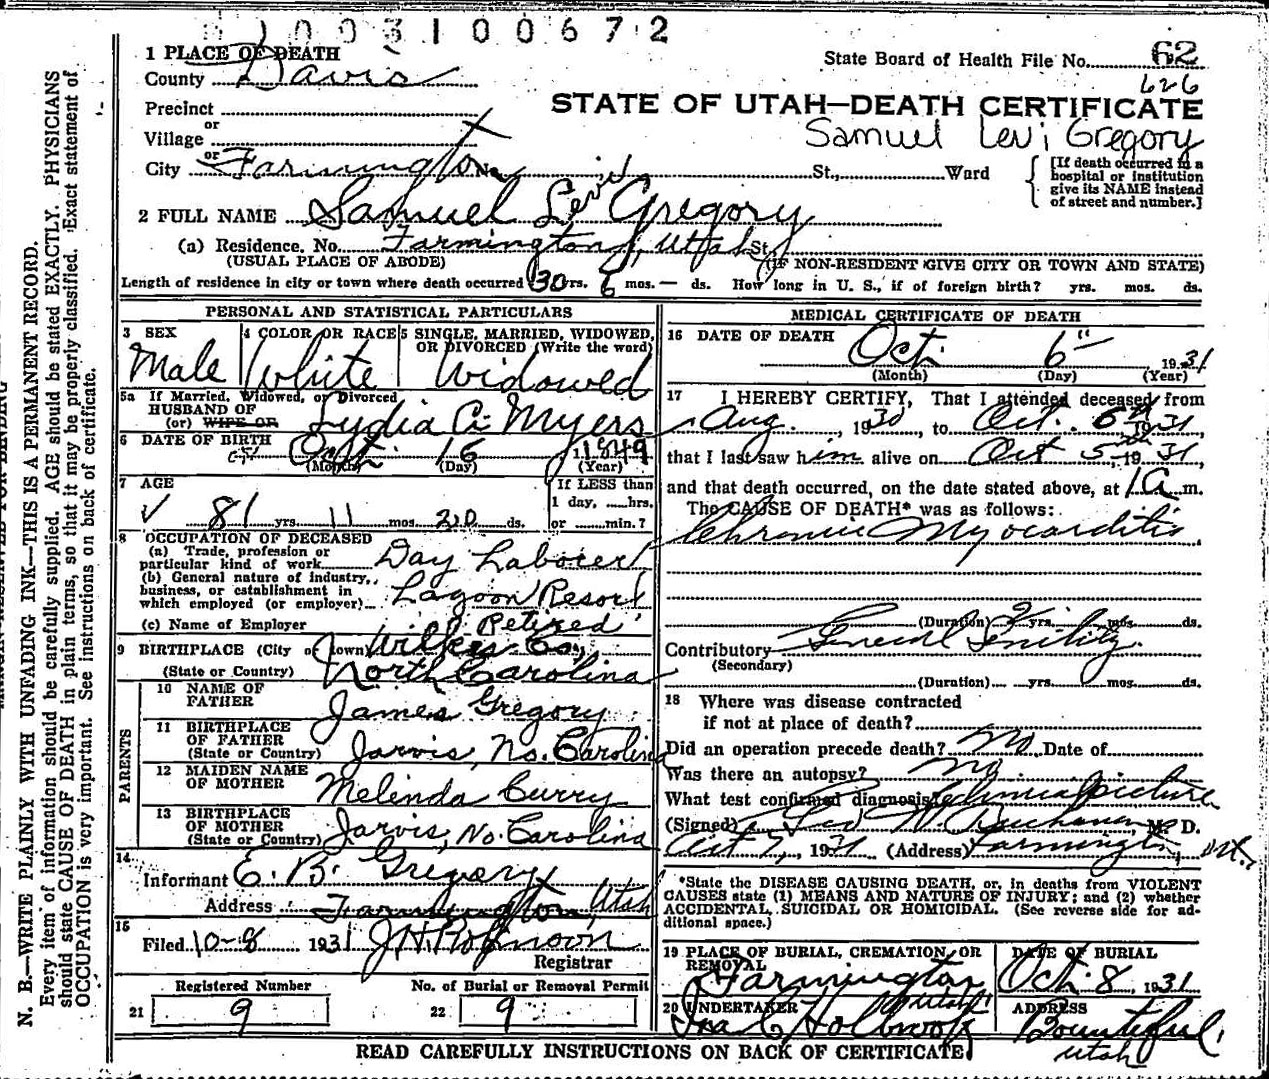 1003100672
1 PLACE OF DEATH
State Board of Health File No. 62
626
County Davis
STATE OF UTAH—DEATH CERTIFICATE
Precinct
or
Village
Samuel Levi Gregory
or
City Farmington No. St., Ward
[If death occurred in a hospital or institution give its NAME instead of street and number.]
2 FULL NAME Samuel Levi Gregory
(a) Residence. No. Farmington, Utah St.
(USUAL PLACE OF ABODE) (IF NON-RESIDENT GIVE CITY OR TOWN AND STATE)
Length of residence in city or town where death occurred 30 yrs. 6 mos. — ds. How long in U. S., if of foreign birth? yrs. mos. ds.
PERSONAL AND STATISTICAL PARTICULARS
3 SEX Male
4 COLOR OR RACE White
5 SINGLE, MARRIED, WIDOWED, OR DIVORCED (Write the word) Widowed
5a If Married, Widowed, or Divorced
HUSBAND OF
(or) WIFE OR Lydia C. Myers
6 DATE OF BIRTH 16 1849
(Month) (Day) (Year)
7 AGE 81 yrs. 11 mos. 20 ds.
If LESS than 1 day, hrs. or min.?
8 OCCUPATION OF DECEASED
(a) Trade, profession or particular kind of work Day Laborer
(b) General nature of industry, business, or establishment in which employed (or employer) Lagoon Resort
(c) Name of Employer Retired
9 BIRTHPLACE (City or town) Wilkes Co.,
(State or Country) North Carolina
PARENTS
10 NAME OF FATHER James Gregory
11 BIRTHPLACE OF FATHER (State or Country) Jarvis, No. Carolina
12 MAIDEN NAME OF MOTHER Melinda Curry
13 BIRTHPLACE OF MOTHER (State or Country) Jarvis, No. Carolina
14
Informant E. B. Gregory
Address Farmington, Utah
15
Filed 10-8 1931 J H Robinson
Registrar
Registered Number No. of Burial or Removal Permit
21 9 22 9
MEDICAL CERTIFICATE OF DEATH
16 DATE OF DEATH Oct. 6" 1931
(Month) (Day) (Year)
17 I HEREBY CERTIFY, That I attended deceased from
Aug. , 1930, to Oct. 6th 1931,
that I last saw him alive on Oct 5th 1931,
and that death occurred, on the date stated above, at 1 a m.
The CAUSE OF DEATH* was as follows:
Chronic Myocarditis
(Duration) 2 yrs. mos. ds.
Contributory General Senility.
(Secondary)
(Duration) yrs. mos. ds.
18 Where was disease contracted
if not at place of death?
Did an operation precede death? no Date of
Was there an autopsy? no
What test confirmed diagnosis? Clinical picture
(Signed) M. D.
Oct 7, 1931 (Address) Farmington, Ut.
*State the DISEASE CAUSING DEATH, or, in deaths from VIOLENT
CAUSES state (1) MEANS AND NATURE OF INJURY; and (2) whether
ACCIDENTAL, SUICIDAL OR HOMICIDAL. (See reverse side for ad-
ditional space.)
19 PLACE OF BURIAL, CREMATION, OR REMOVAL Farmington Utah
DATE OF BURIAL Oct. 8, 1931
20 UNDERTAKER Ira C Holbrook
ADDRESS Bountiful, Utah
READ CAREFULLY INSTRUCTIONS ON BACK OF CERTIFICATE
N. B.—WRITE PLAINLY WITH UNFADING INK—THIS IS A PERMANENT RECORD.
Every item of information should be carefully supplied. AGE should be stated EXACTLY. PHYSICIANS
should state CAUSE OF DEATH in plain terms, so that it may be properly classified. Exact statement of
OCCUPATION is very important. See instructions on back of certificate.